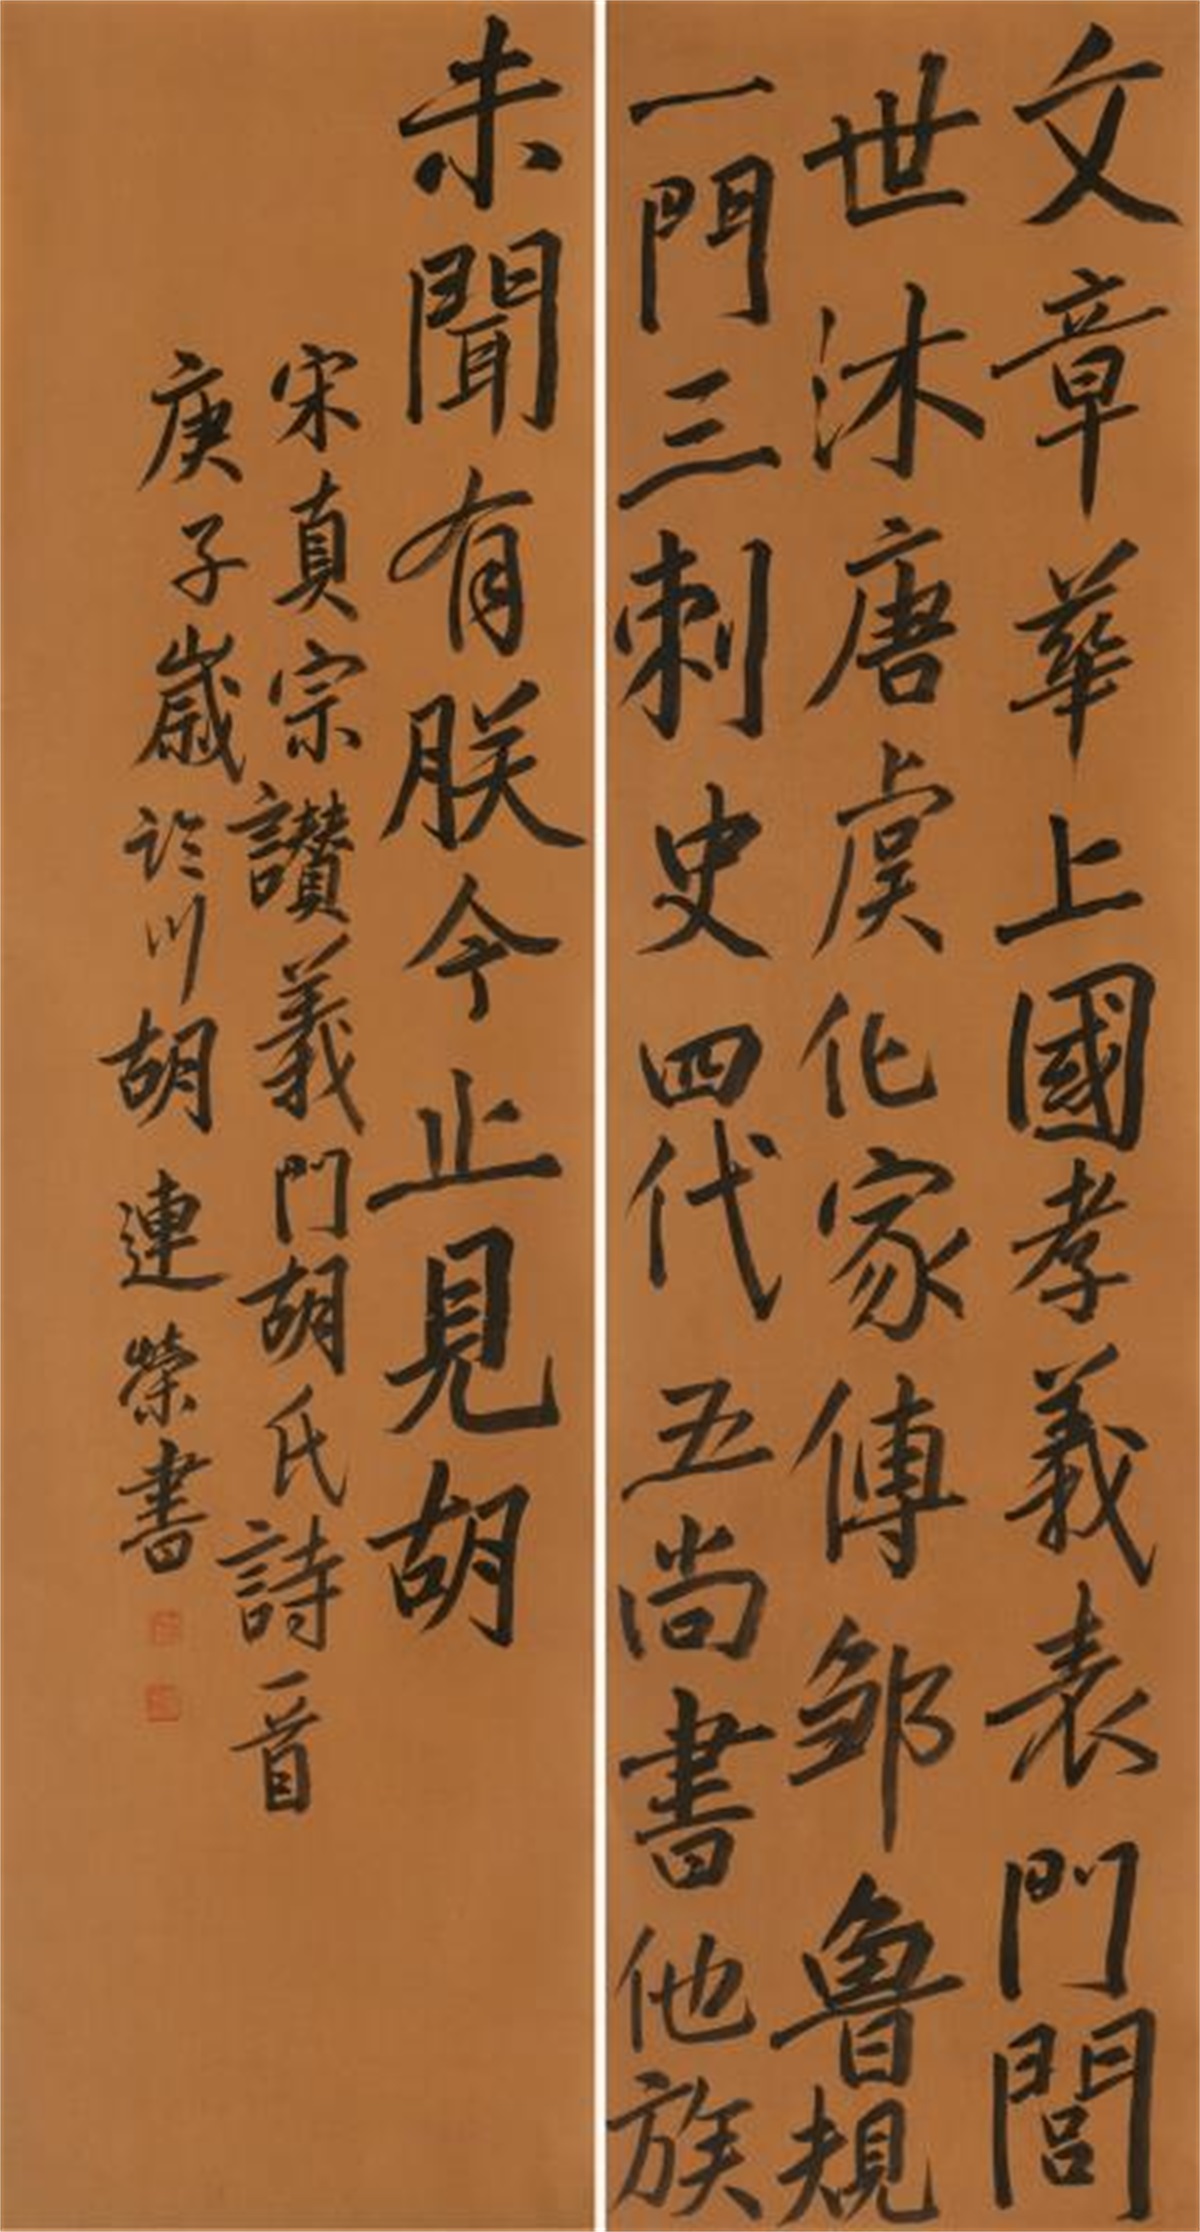 文章華上國孝義表門閭
世沐唐虞化家傳邹魯規
一門三刺史四代五尚書他族
未聞有朕今止見胡
宋真宗讚義門胡氏詩一首
庚子歲臨川胡連榮書